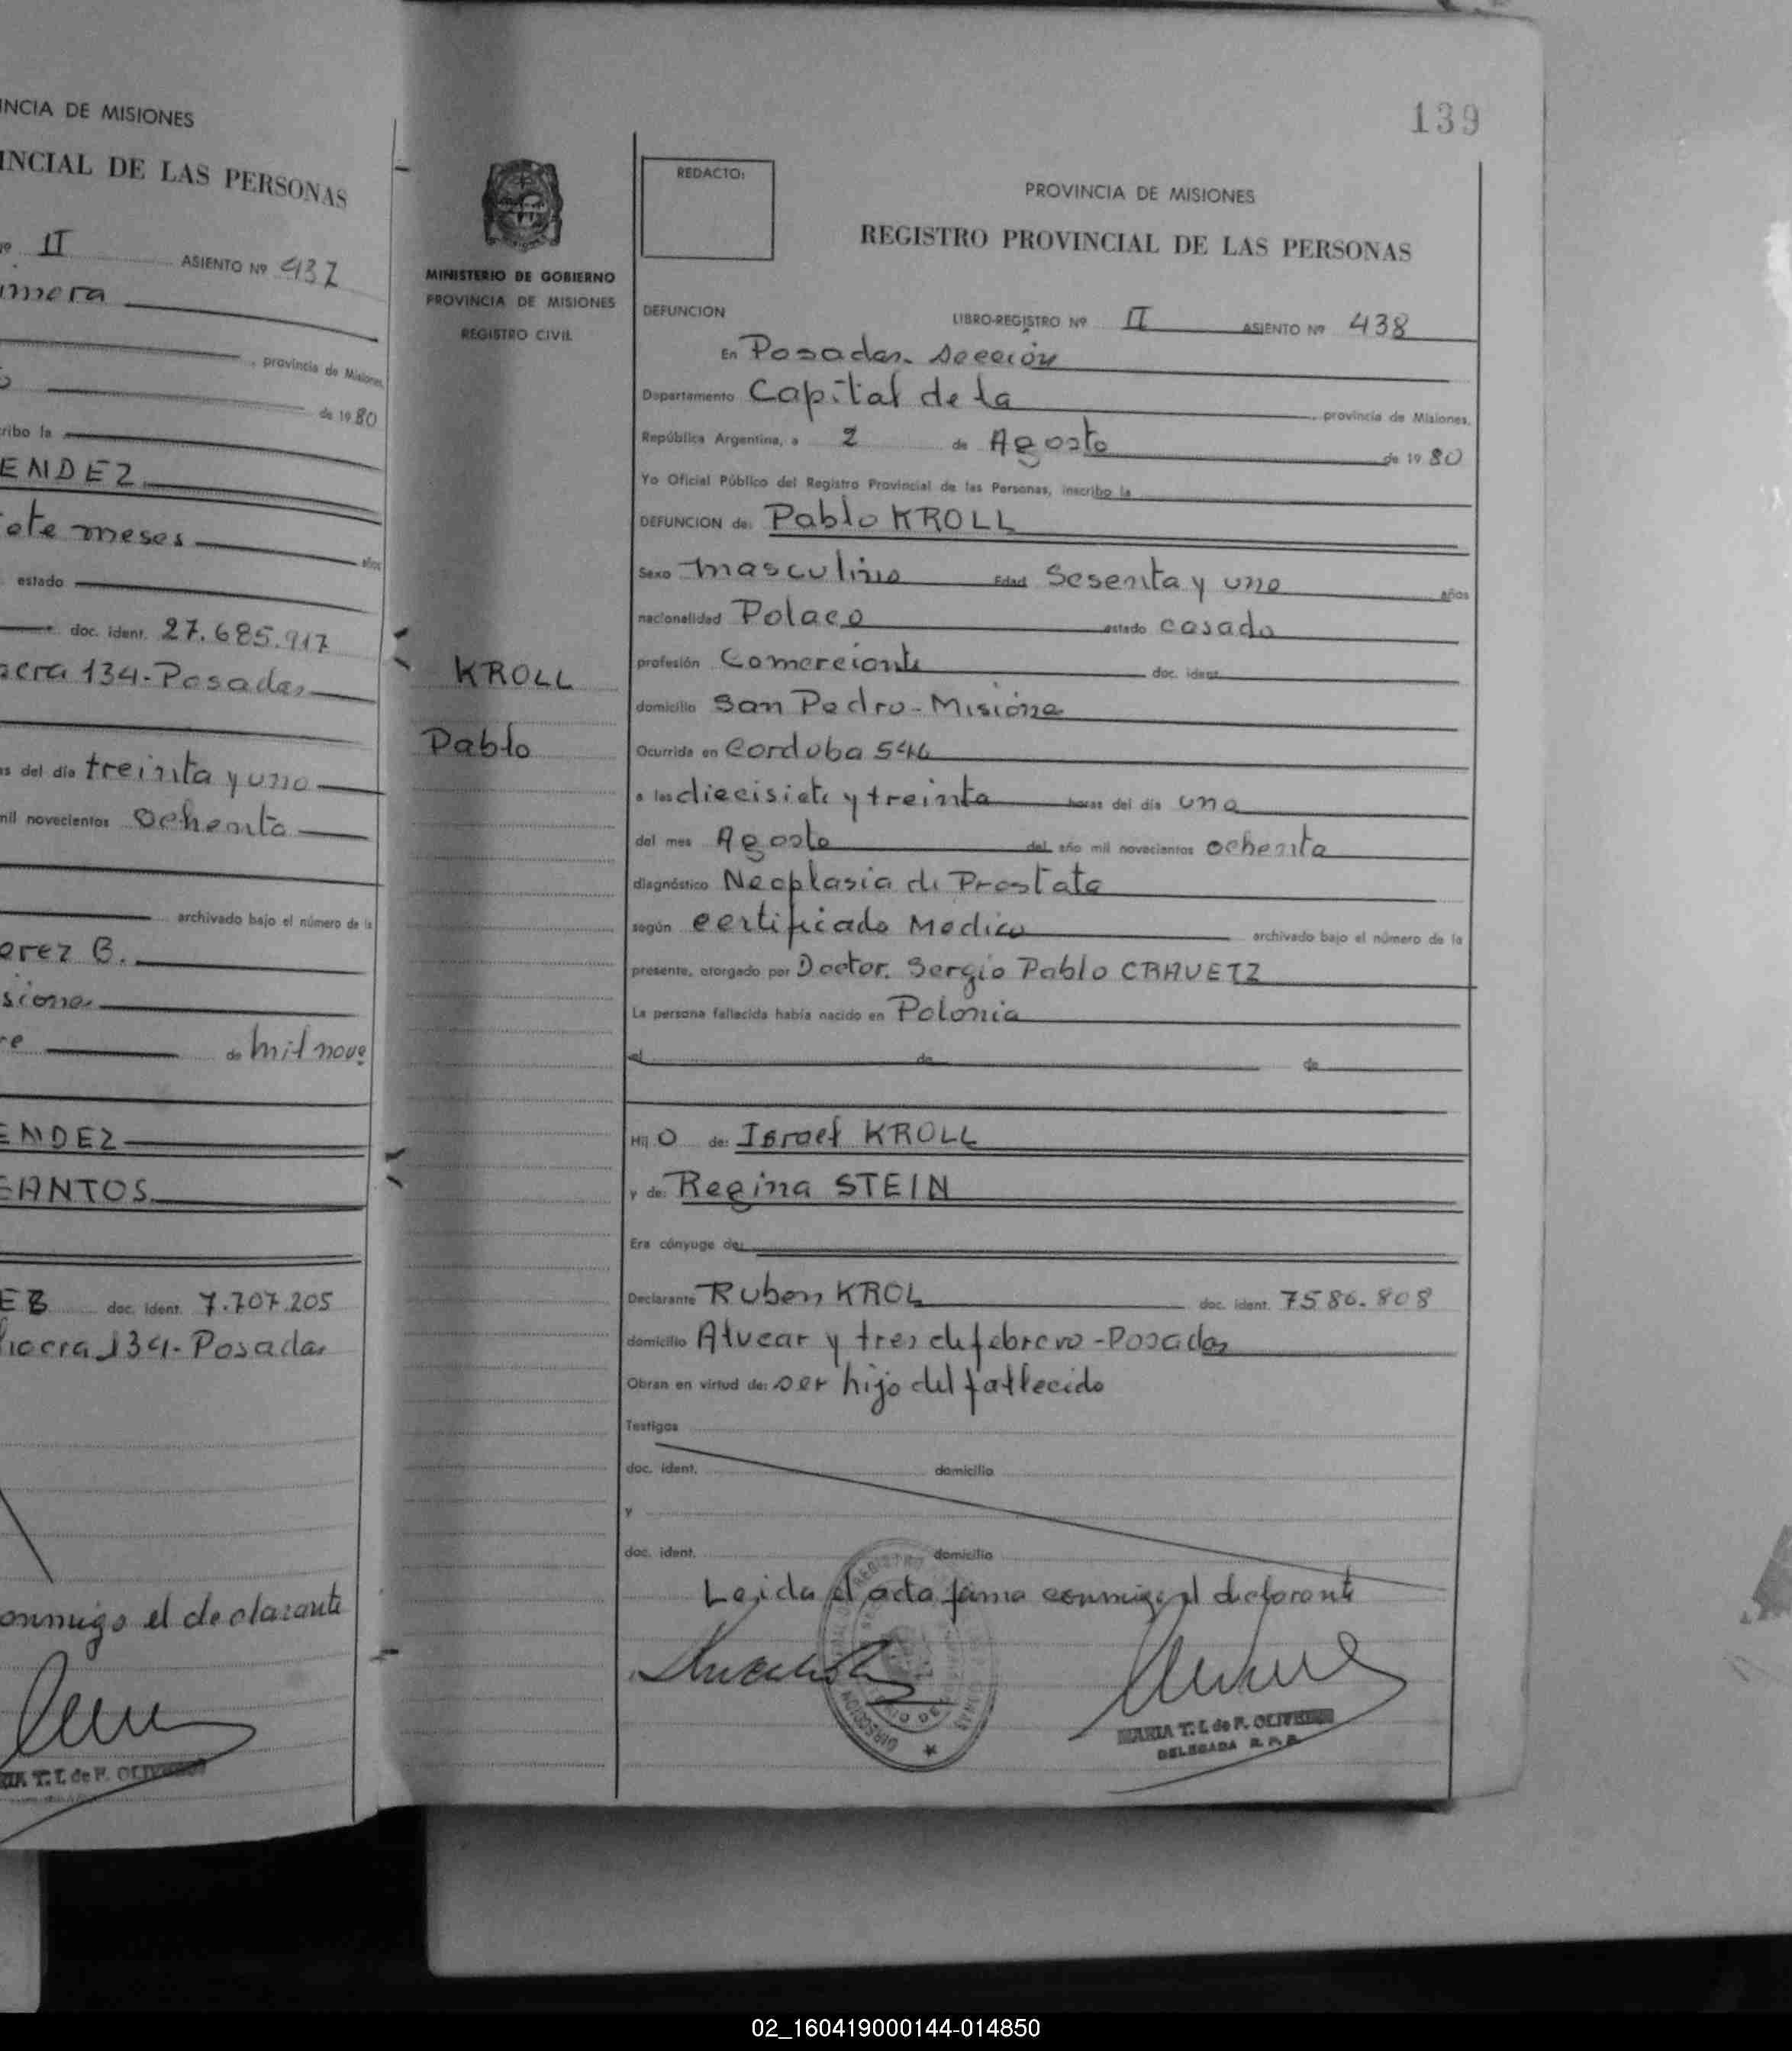 INCIA DE MISIONES
INCIAL DE LAS PERSONAS
II ASIENTO Nº 437
imera
, provincia de Misiones,
de 19 80
cribo la
ENDEZ
ete meses años
estado
doc. ident. 27.685.917
134-Posadas
as del día treinta y uno
mil novecientos ochenta
archivado bajo el número de la
erez B.
siones
re de mil nove
ENDEZ
SANTOS
EB doc. ident. 7.707.205
134-Posadas
onmigo el declarante
T. I. de F. OLIVEIRA
139
MINISTERIO DE GOBIERNO
PROVINCIA DE MISIONES
REGISTRO CIVIL
KROLL
Pablo
REDACTO:
PROVINCIA DE MISIONES
REGISTRO PROVINCIAL DE LAS PERSONAS
DEFUNCION LIBRO-REGISTRO Nº II ASIENTO Nº 438
En Posadas. Sección
Departamento Capital de la , provincia de Misiones,
República Argentina, a 2 de Agosto de 19 80
Yo Oficial Público del Registro Provincial de las Personas, inscribo la
DEFUNCION de: Pablo KROLL
Sexo masculino Edad Sesenta y uno años
nacionalidad Polaco estado casado
profesión Comerciante doc. ident.
domicilio San Pedro-Misione
Ocurrida en Cordoba 546
a las diecisiete y treinta horas del día uno
del mes Agosto del año mil novecientos ochenta
diagnóstico Neoplasia de Prostata
según certificado Medico archivado bajo el número de la
presente, otorgado por Doctor. Sergio Pablo CRAVETZ
La persona fallecida había nacido en Polonia
el de de
Hij o de: Israel KROLL
y de: Regina STEIN
Era cónyuge de:
Declarante Ruben KROL doc. ident. 7586.808
domicilio Alvear y tres de febrero-Posadas
Obran en virtud de: ser hijo del fallecido
Testigos
doc. ident. domicilio
y
doc. ident. domicilio
Leida el acta firma conmigo el declarante
MARIA T. I. de F. OLIVEIRA
DELEGADA R. P. P.
02_160419000144-014850